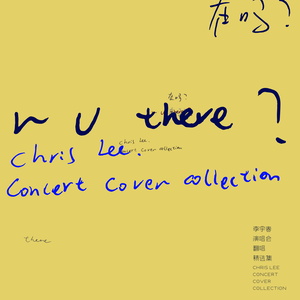 在吗?
在吗?
r u there ?
chris Lee.
Concert Cover Collection
Chris Lee.
Concert Cover Collection
there
李宇春
演唱会
翻唱
精选集
CHRIS LEE
CONCERT
COVER
COLLECTION